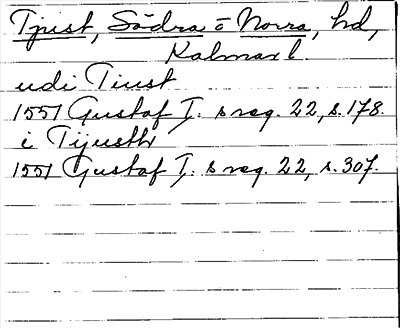 Tjust, Södra o Norra, hd,
Kalmar l.
udi Tiust
1551 Gustaf I:s reg. 22, s. 178.
i Tijusth
1551 Gustaf I:s reg. 22, s. 307.